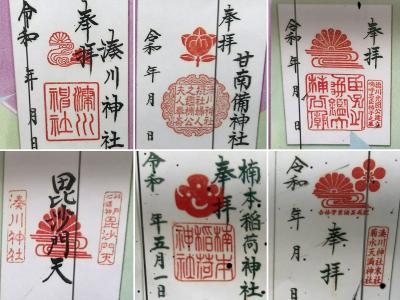 奉拝
湊川神社
令和 年 月 日
湊川神社
奉拝
甘南備神社
令和 年 月 日
奉拝
令和 年 月 日
嗚呼忠臣楠子之墓
毘沙門天
湊川神社
毘沙門天
奉拝
楠本稲荷神社
令和 年五月一日
楠本稲荷神社
奉拝
令和 年 月 日
湊川神社末社
菊水天満神社